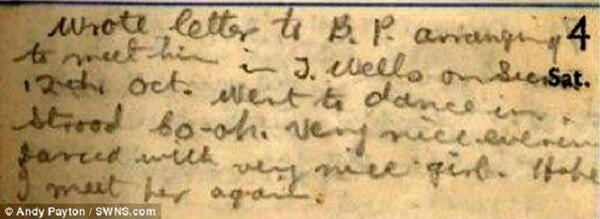 Wrote letter to B. P. arranging 4
to meet him in T. Wells on Sun. Sat.
12th Oct. Went to dance in
Strood Co-op. Very nice evening
danced with very nice girl. Hope
I meet her again.
© Andy Payton / SWNS.com